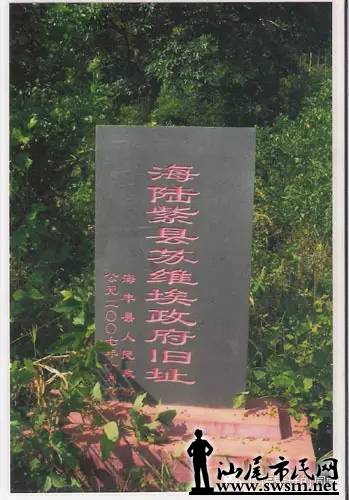 海陆紫县苏维埃政府旧址
海丰县人民政
公元二〇〇七年
汕尾市民网
www.swsm.net